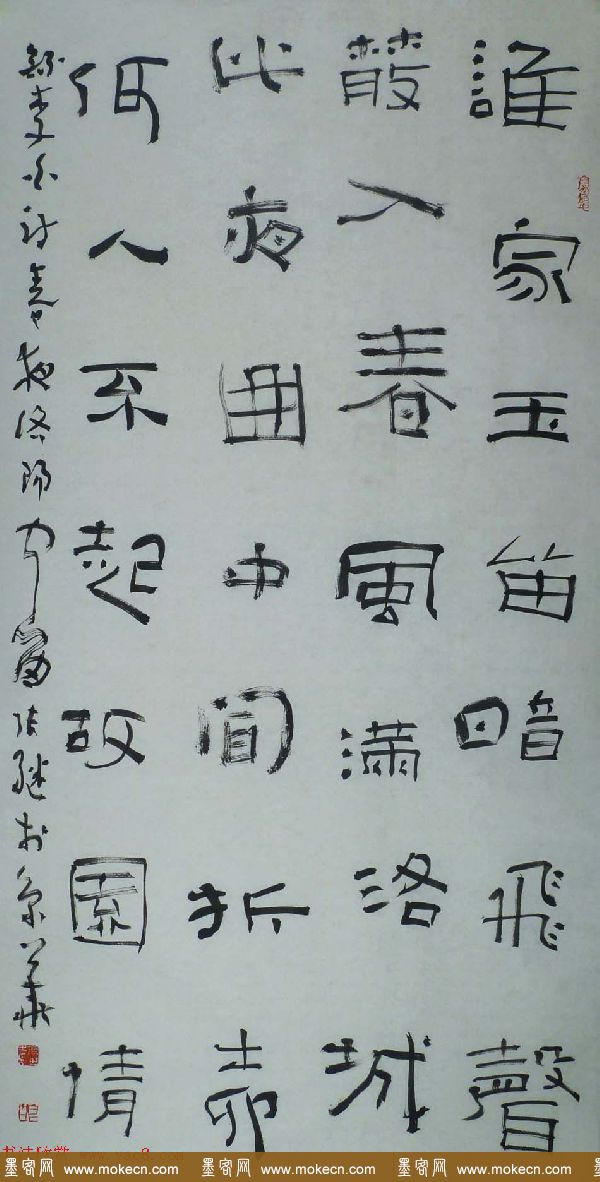 誰家玉笛暗飛聲
散入春風滿洛城
此夜曲中聞折柳
何人不起故園情
錄李白詩春夜洛陽聞笛張継於京華
墨客网 www.mokecn.com 墨客网 www.mokecn.com 墨客网 www.mokecn.com